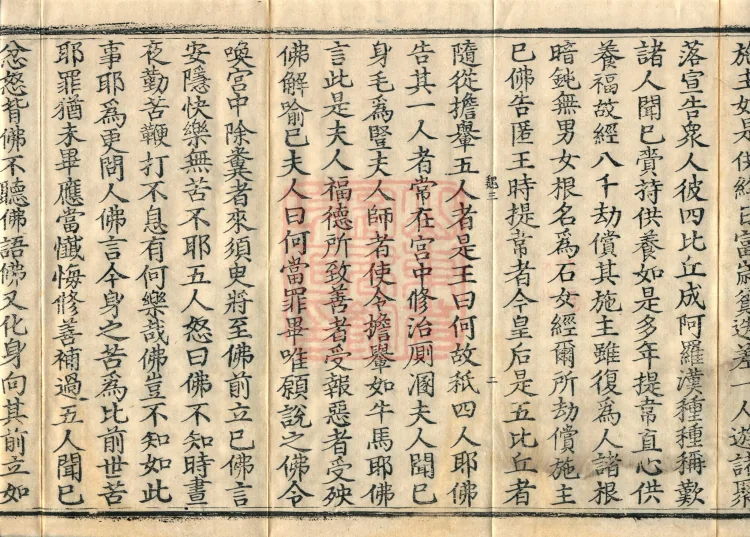 施主如是一人遊諸聚
落宣告衆人彼四比丘成阿羅漢種種稱歎
諸人聞已賷持供養如是多年提常直心供
養福故經八千劫償其施主雖復爲人諸根
暗鈍無男女根名爲石女經爾所劫償施主
已佛告匿王時提常者今皇后是五比丘者
三
二
隨從擔轝五人者是王曰何故秖四人耶佛
告其一人者常在宮中修治厠溷夫人聞已
身毛爲豎夫人師者使令擔轝如牛馬耶佛
言此是夫人福德所致善者受報惡者受殃
佛解喻已夫人曰何當罪畢唯願說之佛令
喚宮中除糞者來須臾將至佛前立已佛言
安隱快樂無苦不耶五人怒曰佛不知時晝
夜勤苦鞭打不息有何樂哉佛豈不知如此
事耶爲更問人佛言今身之苦為比前世苦
耶罪猶未畢應當懺悔修善補過五人聞已
忿怒皆佛不聽佛語佛又化身向其前立如